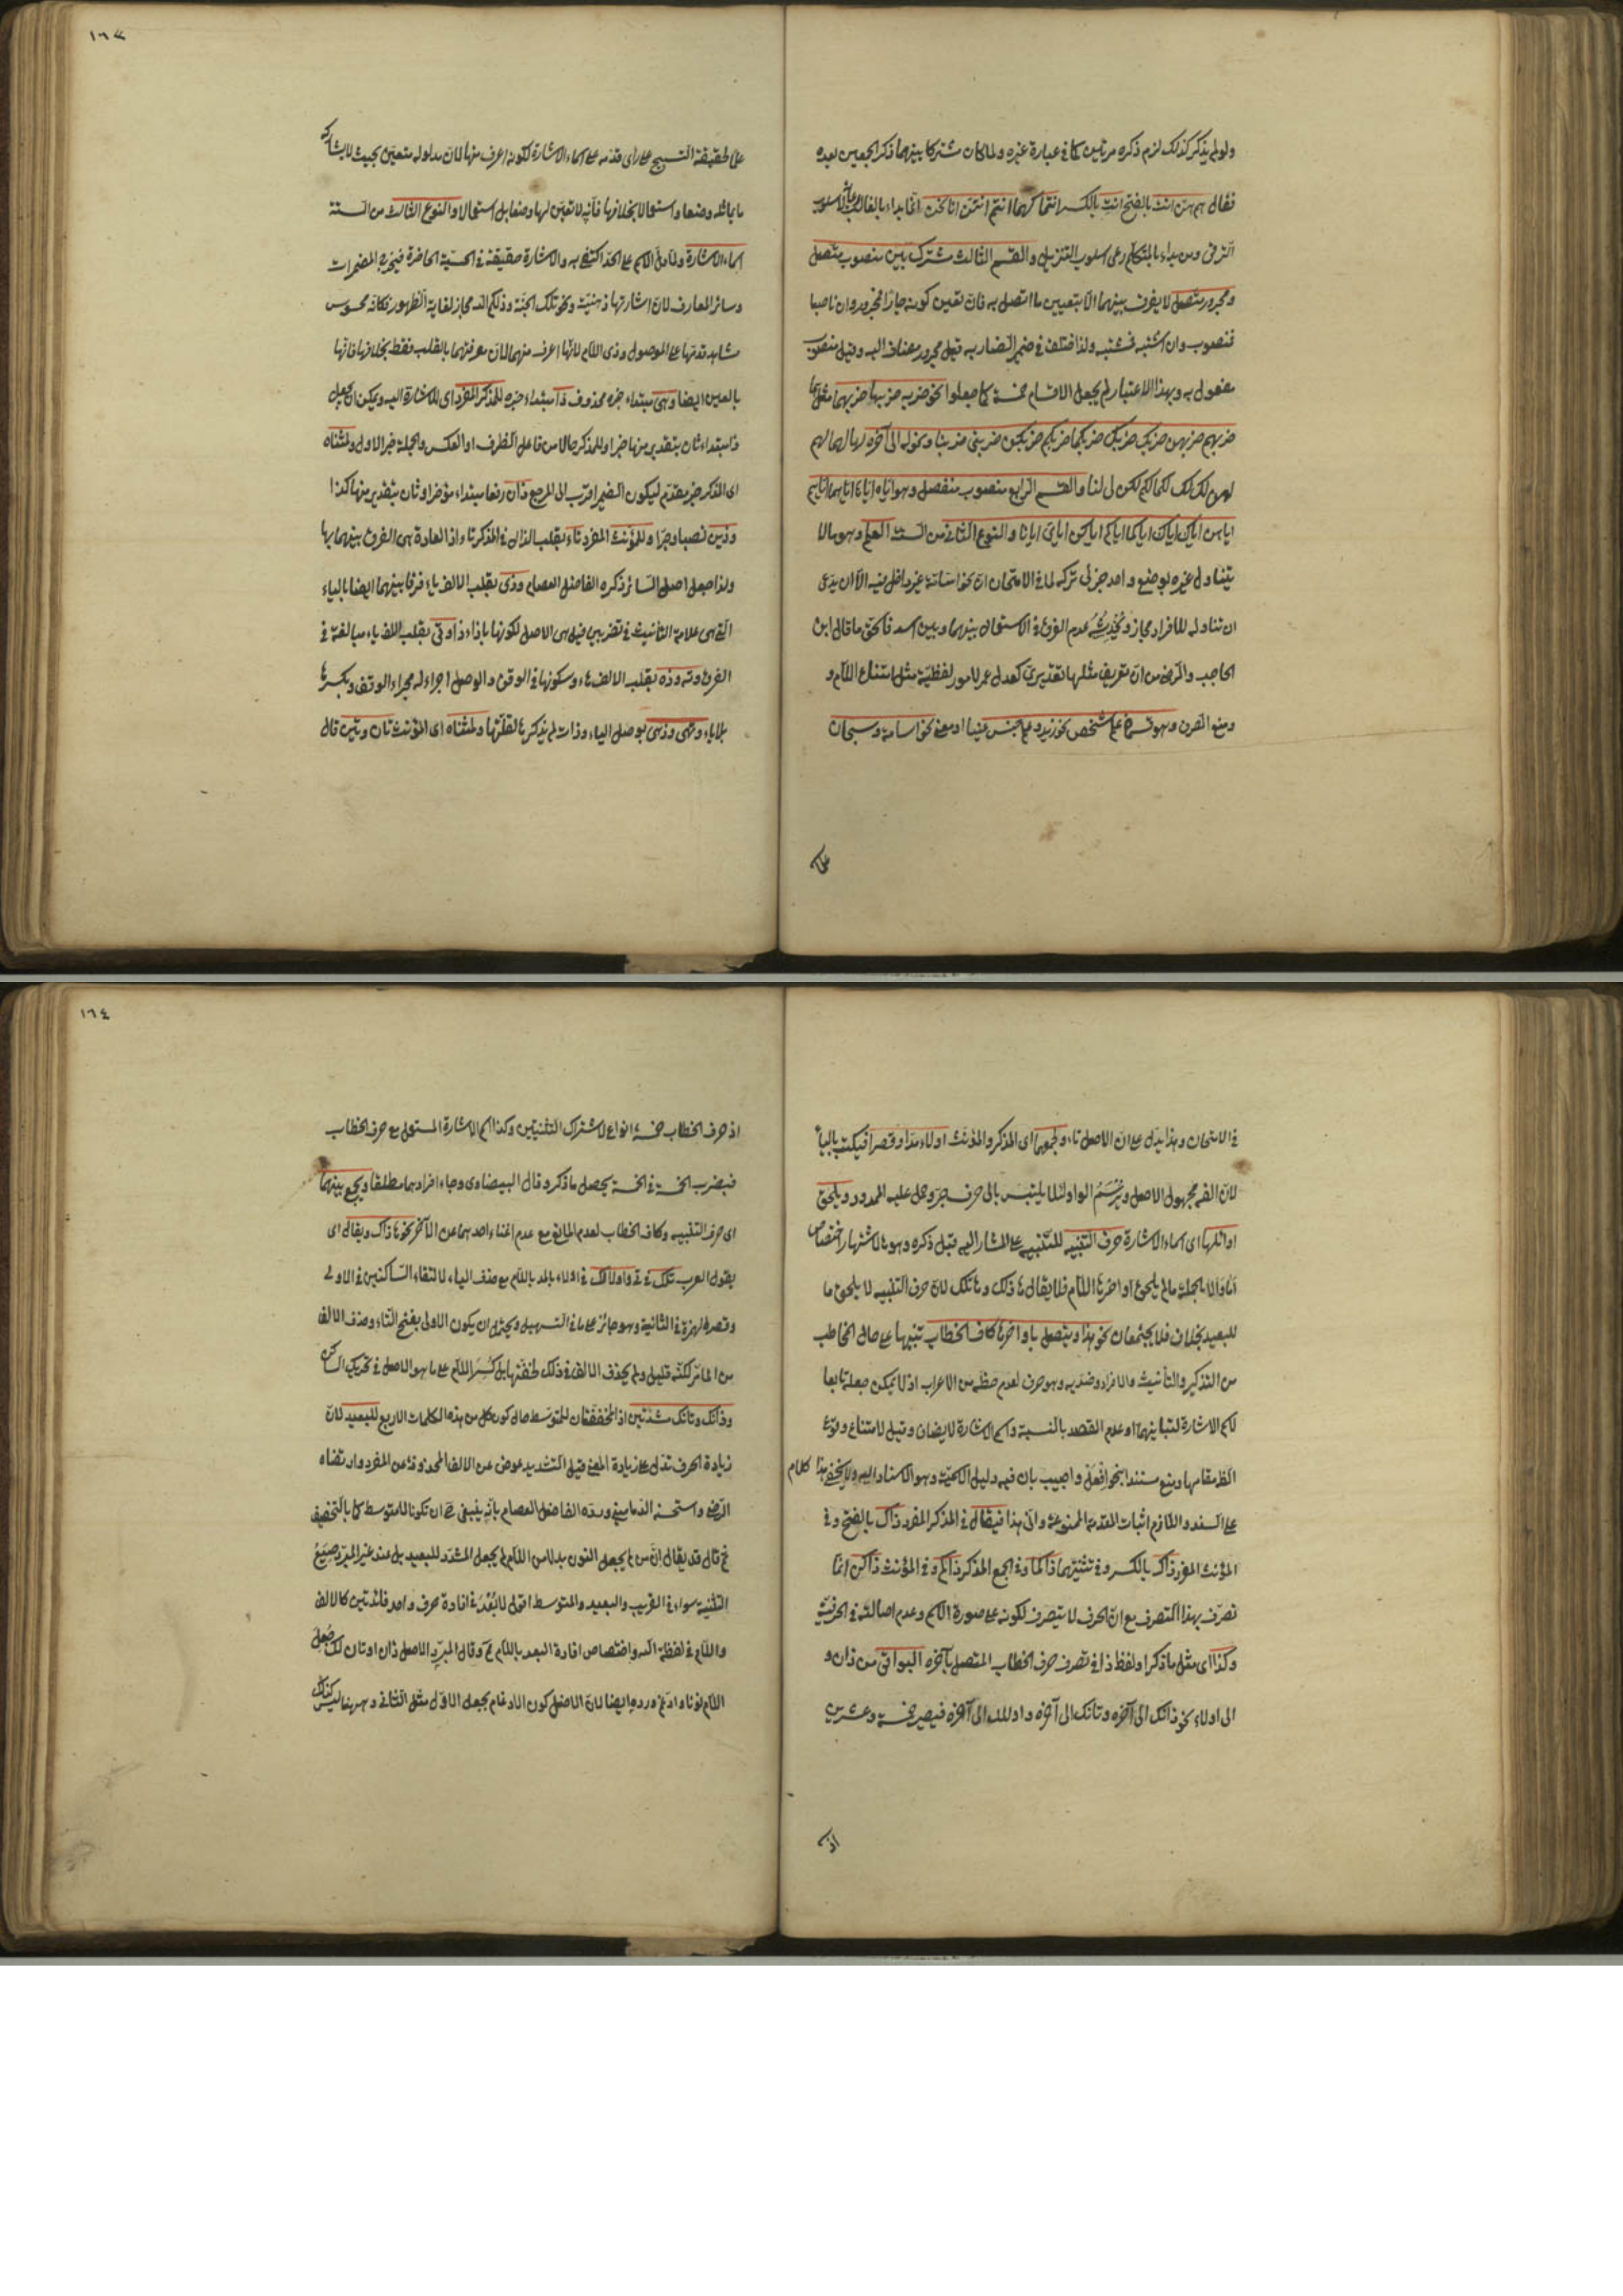 ولو لم يذكر كذلك لزم ذكره مرتين كما في عبارة غيره ولما كان مشتركا بينهما ذكر الجمعين بعده
فقال هم هن انت بالفتح انت بالكسر انتما كهما انتم انتن انا نحن انما بداء بالغائب على اسلوب
الترقي ومن بداء بالمتكلم رعى اسلوب التنزيل والقسم الثالث مشترك بين منصوب متصل
ومجرور متصل لا يفرق بينهما الا بتعيين ما اتصل به فان تعين كونه جارا فمجرور وان ناصبا
فمنصوب وان اشتبه فمشتبه ولذا اختلف في ضمير الضاربه قيل مجرور مضاف اليه وقيل منصوب
مفعول به وبهذا الاعتبار لم يجعل الاقسام خمسة كما جعلوا نحو ضربه ضربها ضربهما مثل
ضربهم ضربهن ضربك ضربك ضربكما ضربكم ضربكن ضربني ضربنا ونحو له الى آخره لها لهما لهم
لهن لك لك لكما لكم لكن لي لنا والقسم الرابع منصوب منفصل وهو اياه اياها اياهما اياهم
اياهن اياك اياك اياكما اياكم اياكن اياي ايانا والنوع الثاني من الستة العلم وهو ما لا
يتناول غيره بوضع واحد جزئي تركه لما في الامتحان ان نحو اسامة غير داخل فيه الا ان يدعى
ان تناوله للافراد مجاز ويخدشه عدم الفرق في الاستعمال بينهما وبين اسد فالحق ما قال ابن
الحاجب والرضي من ان تعريف مثلها تقديري كعدل عمر لامور لفظية مثل امتناع اللام و
ومنع الصرف وهو قسمان علم شخص نحو زيد وعلم جنس عينا او معنى نحو اسامة وسبحان
على
١٦٣
على حقيقة التسبيح على رأى قدمه على اسماء الاشارة لكونه اعرف منها لان مدلوله متعين بحيث لا يشاركه
ما يماثله وضعا واستعمالا بخلافها فانه لا تعين لها وضعا بل استعمالا والنوع الثالث من الستة
اسماء الاشارة ولما دل الاسم على الحد اكتفى به والاشارة حقيقة في الحسية الحاضرة فيخرج المضمرات
وسائر المعارف لان اشارتها ذهنية ونحو تلك الجنة وذلكم الله مجاز لغاية الظهور فكانه محسوس
مشاهد قدمها على الموصول وذي اللام لانها اعرف منهما لان معرفتهما بالقلب فقط بخلافها فانها
بالعين ايضا وهي مبتداء خبره محذوف ذا مبتداء خبره للمذكر المفرد اى للاشارة اليه ويمكن ان يجعل
ذا مبتداء ثان بتقدير منها خبرا وللمذكر حالا من فاعل الظرف او العكس والجملة خبر الاول ولمثناه
اى المذكر خبر مقدم ليكون الضمير اقرب الى المرجع ذان رفعا مبتداء مؤخر او ثان بتقدير منها كذا
وذين نصبا وجرا وللمؤنث المفرد تا بقلب الذال في المذكر تاء اذ العادة هي الفرق بينهما بها
ولذا جعل اصل السائر ذكره الفاضل العصام وذي بقلب الالف ياء فرقا بينهما ايضا بالياء
التي هي علامة التأنيث في تضربين قيل هي الاصل لكونها بازاء ذا وتي بقلب الالف ياء مبالغة في
الفرق وته وذه بقلب الالف هاء وسكونها في الوقف والوصل اجراء له مجراء الوقف وبكسرها
بلا ياء وتهي وذهي بوصل الياء وذات لم يذكرها لقلتها ولمثناه اى المؤنث تان وتين قال
في الامتحان وهذا يدل على ان الاصل تا ولجمعهما اى المذكر والمؤنث اولاء مدا وقصرا فيكتب بالياء
لان الفه مجهول الاصل ويرسم الواو لئلا يلتبس بالى حرف جر وحمل عليه الممدود ويلحق
اوائلها اى اسماء الاشارة حرف التنبيه للتنبيه على المشار اليه قبل ذكره وهو ها لاشتهار اختصاص
اما والا بالجملة ما لم يلحق اواخرها اللام فلا يقال هاذلك وهاتلك لان حرف التنبيه لا يلحق ما
للبعيد بخلاف فلا يجتمعان نحو هذا ويتصل باواخرها كاف الخطاب تنبيها على حال المخاطب
من التذكير والتأنيث والافراد وضديه وهو حرف لعدم حظه من الاعراب اذ لا يمكن جعله تابعا
لاسم الاشارة لتباينهما وعدم القصد بالنسبة واسم الاشارة لا يضاف وقيل لامتناع وقوع
الظاهر مقامها ومنع مستندا بنحو افعل واجيب بان فيه دليل الاسمية وهو الاسناد اليه ولا يخفى هذا كلام
على السند واللازم اثبات المقدمة الممنوعة والى هذا فيقال في المذكر المفرد ذاك بالفتح وفي
المؤنث المفرد ذاك بالكسر وفي تثنيتهما ذاكما وفي الجمع المذكر ذاكم وفي المؤنث ذاكن انما
تصرف بهذا التصرف مع ان الحرف لا يتصرف لكونه على صورة الاسم وعدم اصالته في الحرفية
وكذا اى مثل ما ذكر او لفظ ذا في تصرف حرف الخطاب المتصل بآخره البواقي من ذان و
الى اولاء نحو ذانك الى آخره وتانك الى آخره واولئك الى آخره فيصير خمسة وعشرين
اذ
١٦٤
اذ حرف الخطاب خمسة انواع لاشتراك التثنيتين وكذا اسم الاشارة المستعمل مع حرف الخطاب
فبضرب الخمسة في الخمسة يحصل ما ذكر وقال البيضاوي وجاء افرادهما مطلقا ويجمع بينهما
اى حرف التنبيه وكاف الخطاب لعدم المانع مع عدم اغناء احدهما عن الآخر نحو هاذاك ويقال اى
يقول العرب تلك في تي واولالك في اولاء بالمد باللام مع حذف الياء لالتقاء الساكنين في الاولى
وقصر الهمزة في الثانية وهو جائز على ما في التسهيل ويحتمل ان يكون الاولى بفتح التاء وحذف الالف
من تا لكنه قليل ولم يحذف الالف في ذلك لخفتها بل كسر اللام على ما هو الاصل في تحريك الساكن
وذانك وتانك مشددتين اذ المخففتان للمتوسط حال كون كل من هذه الكلمات الاربع للبعيد لان
زيادة الحرف تدل على زيادة المعنى قيل التشديد عوض عن الالف المحذوفة عن المفرد وارتضاه
الرضي واستحسنه الدماميني ورده الفاضل العصام بانه ينبغي ان تكونا للمتوسط كما بالتخفيف
ثم قال قد يقال ان من لم يجعل النون بدلا من اللام لم يجعل المشدد للبعيد بل عند غير المبرد صيغ
التثنية سواء في القريب والبعيد والمتوسط اقول لا بعد في افادة حرف واحد فائدتين كالالف
واللام في لفظة الله واختصاص افادة البعد باللام ثم وقال المبرد الاصل ذان اوتان لك جعل
اللام نونا وادغم ورده ايضا لان الاصل كون الادغام بجعل الاول مثل الثاني وههنا ليس كذلك